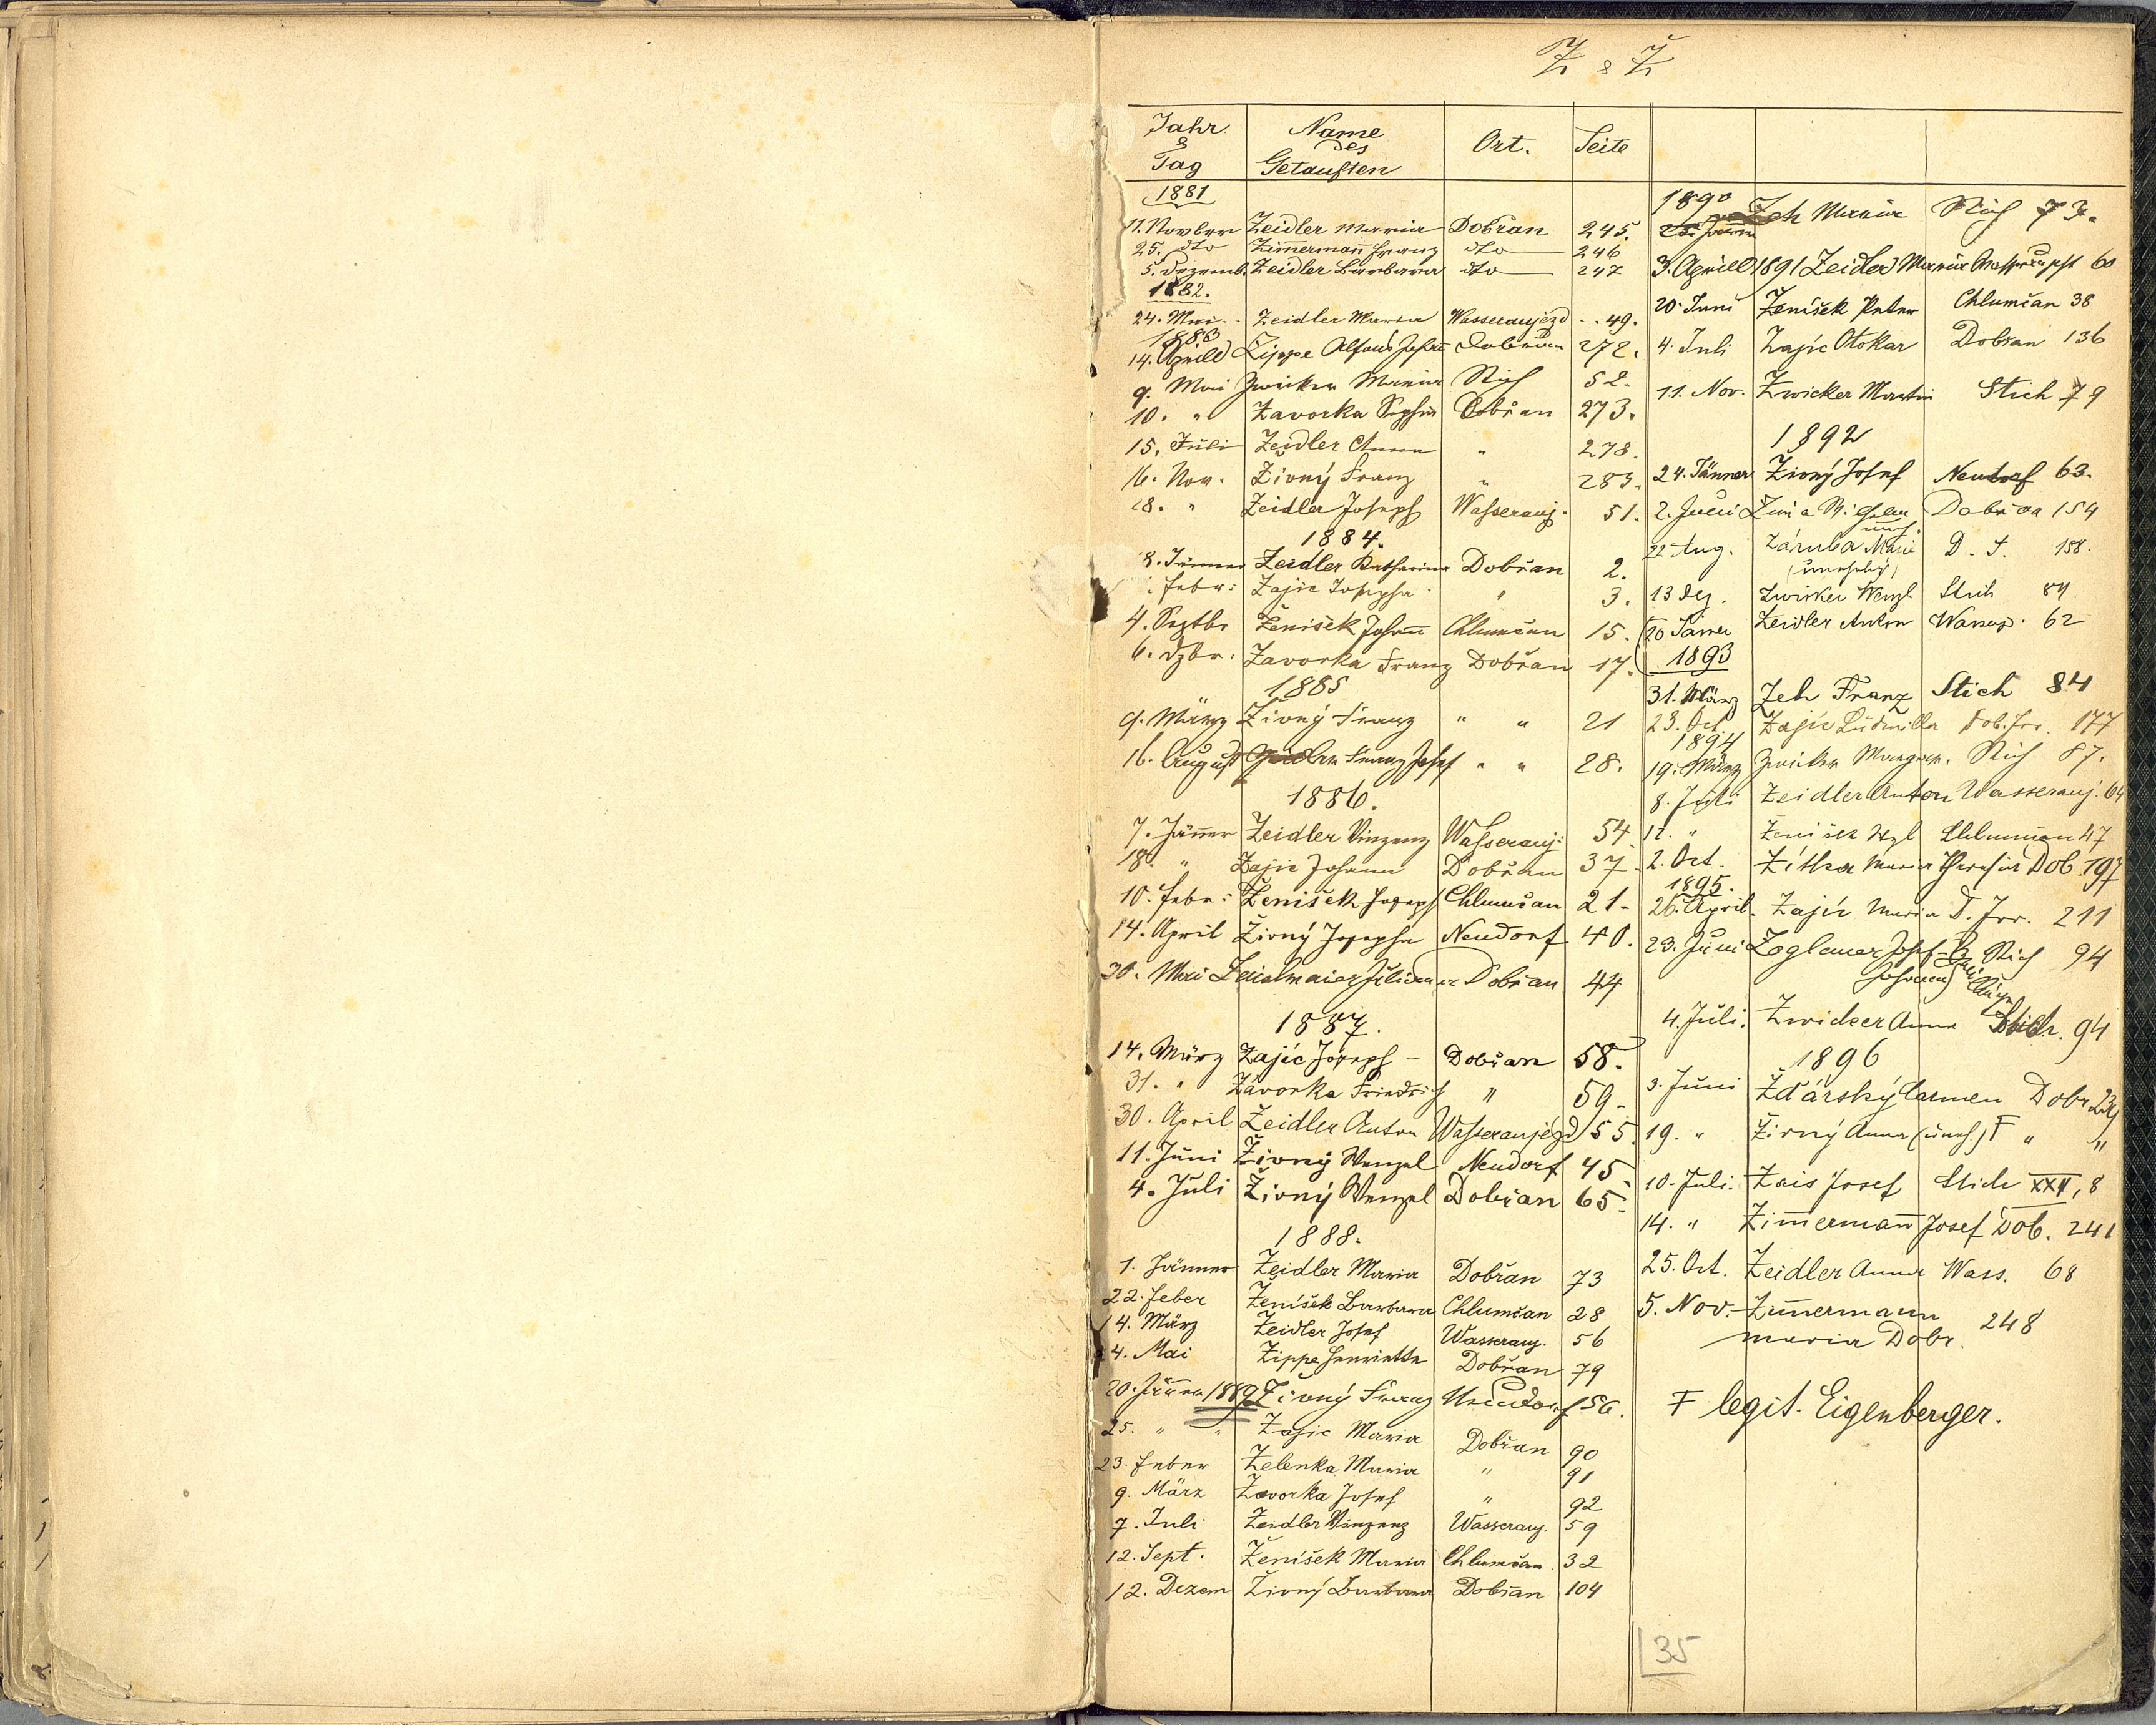 Z & Ž
Jahr & Tag Name des Getauften Ort. Seite
1881
11. Novber Zeidler Maria Dobřan 245.
25. dto Zimermann Franz dto 246
5. Dezemb. Zeidler Barbara dto 247
1882.
24. Mai Zeidler Maria Wasseraujezd 49.
1883
14. Aprill Zippe Alfons Johann Dobřan 272.
9. Mai Zwicker Maria Stich 52.
10. " Zavorka Sophia Dobřan 273.
15. Juli Zeidler Anna " 278.
16. Nov. Živný Franz " 283.
28. " Zeidler Joseph Wasserauj. 51.
1884.
8. Jänner Zeidler Katharina Dobřan 2.
Febr: Zajic Josepha " 3.
4. Septbr Ženišek Johann Chlumčan 15.
6. Dzbr: Zavorka Franz Dobřan 17.
1885
9. März Živný Franz " " 21
16. August Franz Josef " " 28.
1886.
7. Jänner Zeidler Vinzenz Wasserauj: 54.
18. " Zajic Johann Dobřan 37.
10. Febr: Ženišek Joseph Chlumčan 21.
14. April Živný Josepha Neudorf 40.
30. Mai Juliana Dobřan 44
1887.
14. März Zajíc Joseph – Dobřan 58.
31. " Závorka Friedrich " 59.
30. April Zeidler Anton Wasseraujezd 55.
11. Juni Živný Wenzel Neudorf 45.
4. Juli Živný Wenzel Dobřan 65.
1888.
1. Jänner Zeidler Maria Dobřan 73
22. Feber Ženíšek Barbara Chlumčan 28
14. März Zeidler Josef Wasserauj. 56
24. Mai Zippe Henriette Dobřan 79
20. Jänner 1889 Živný Franz Neudorf 56.
25. " " Zajic Maria Dobřan 90
23. Feber Zelenka Maria " 91
9. März Zavorka Josef " 92
7. Juli Zeidler Vinzenz Wasserauj. 59
12. Sept. Ženíšek Maria Chlumčan 32
12. Dezem Živný Barbara Dobřan 104
1890
25. Jänner Zeh Maria Stich 73.
3. Aprill 1891 Zeidler Maria 60
20. Juni Ženíšek Peter Chlumčan 38
4. Juli Zajíc Otokar Dobřan 136
11. Nov. Zwicker Martin Stich 79
1892
24. Jänner Živný Josef Neudorf 63.
2. Juni Dobřan 154
22. Aug. Záruba Marie D. I. 158.
(unehelich)
13 Dez. Zwicker Wenzl Stich 84.
20 Jänner Zeidler Anton Wasserauj. 62
1893
31. März Zeh Franz Stich 84
23. Oct. Zajíc Ludmilla Dob. Irr. 177
1894
19. März Zwicker Margar. Stich 87.
8. Juli Zeidler Anton Wasserauj. 64
12. " Ženišek Wzl Chlumčan 47
2. Oct. Zítka Maria Theresia Dob. 197
1895.
26. April. Zajíc Maria D. Irr. 211
23. Juni Zoglauer Josef Stich 94
Johann
4. Juli. Zwicker Anna Stich. 94
1896
3. Juni Žďárský Carmen Dobr. 239
19. " Živný Anna (uneh.) F " "
10. Juli. Zais Josef Stich XXII, 8
14. " Zimmermann Josef Dob. 241
25. Oct. Zeidler Anna Wass. 68
5. Nov. Zimmermann 248
Maria Dobr.
F legit. Eigenberger.
35